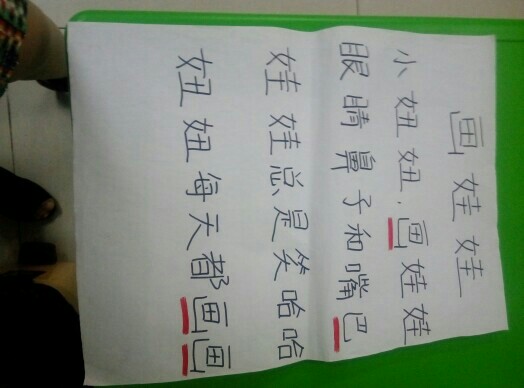 画娃娃
小妞妞,画娃娃
眼睛鼻子和嘴巴
娃娃总是笑哈哈
妞妞每天都画画